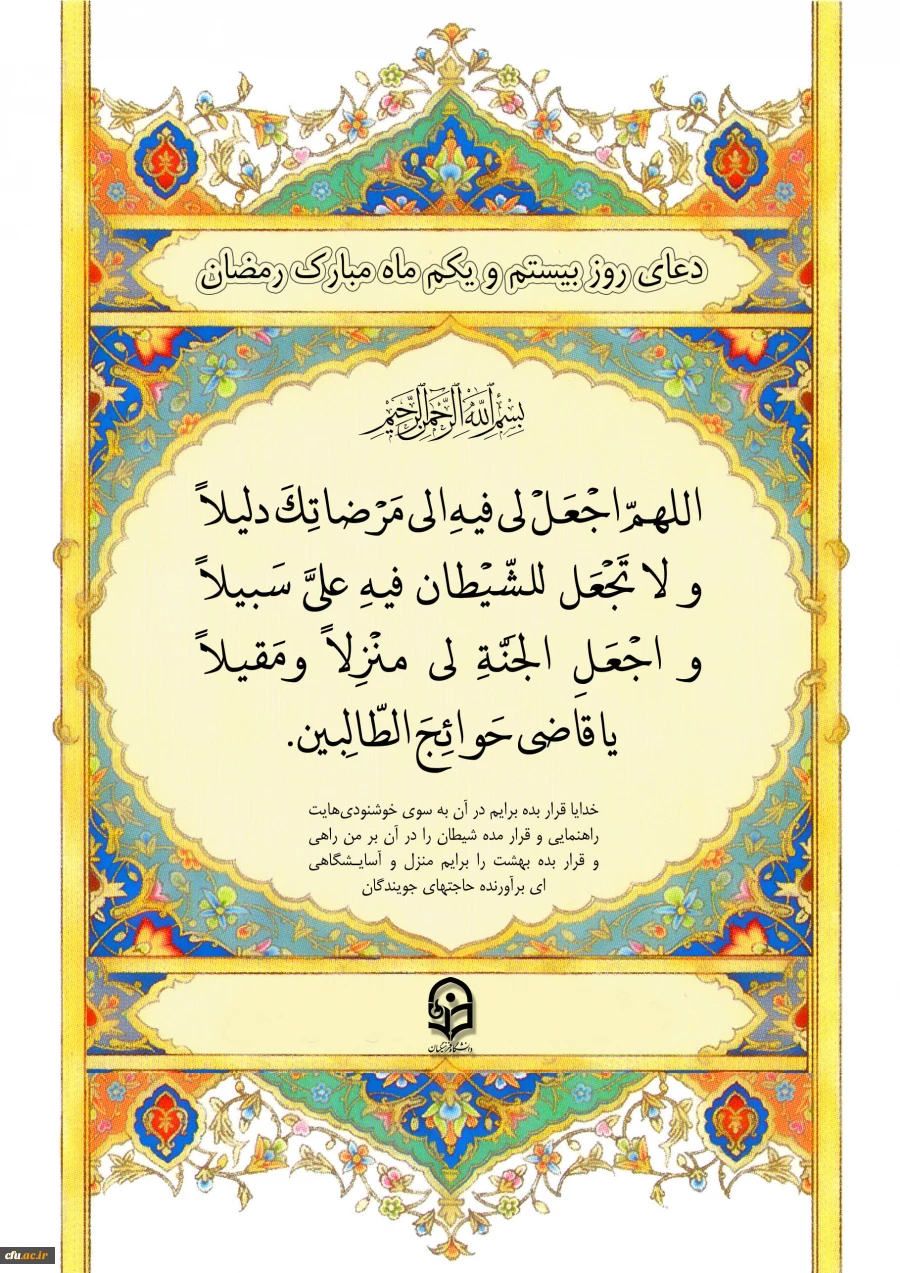 دعای روز بیستم و یکم ماه مبارک رمضان
بِسْمِ ٱللَّهِ ٱلرَّحْمَٰنِ ٱلرَّحِيمِ
اللهمّ اجْعَلْ لی فیهِ الی مَرْضاتِكَ دلیلاً
و لا تَجْعَل للشّیْطان فیهِ علیَّ سَبیلاً
و اجْعَلِ الجَنّةِ لی منْزِلاً ومَقیلاً
یا قاضی حَوائِجَ الطّالِبین.
خدایا قرار بده برایم در آن به سوی خوشنودی‌هایت
راهنمایی و قرار مده شیطان را در آن بر من راهی
و قرار بده بهشت را برایم منزل و آسایشگاهی
ای برآورنده حاجتهای جویندگان
دانشگاه فرهنگیان
cfu.ac.ir